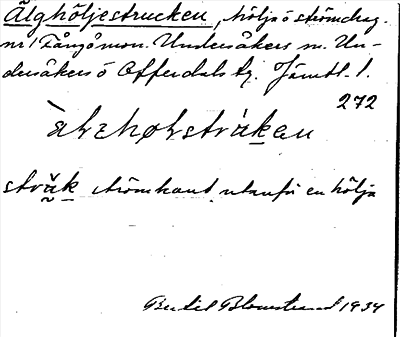 Älghöljestrucken, hölja ö strömdrag.
nr 1 Fångåmon. Undersåkers sn. Un-
dersåkers o Offerdals tg. Jämtl. l.
272
strä̭k strömkant utanför en hölja
Bertil Blomstrand 1934